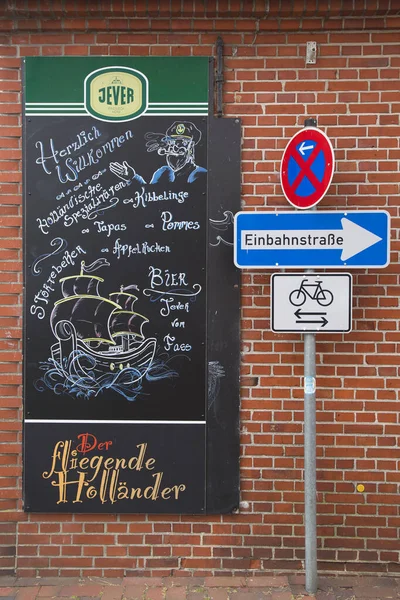 JEVER
Herzlich
Willkommen
Holländische
Spezialitäten
Kibbelinge
Tapas
Pommes
Apfelkuchen
Störtebeker
Bier
Jever
vom
Fass
Der
fliegende
Holländer
Einbahnstraße